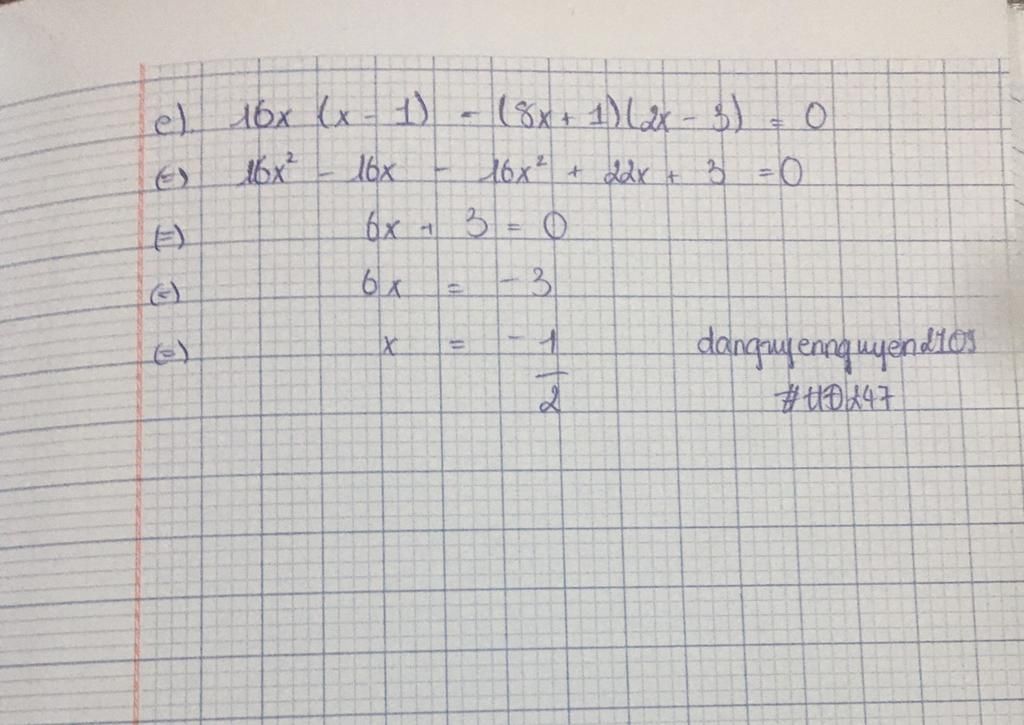 e) 16x (x - 1) - (8x + 1)(2x - 3) = 0
(=) 16x² - 16x - 16x² + 22x + 3 = 0
(=) 6x + 3 = 0
(=) 6x = - 3
(=) x = - 1/2
danguyennguyen2109
#HĐ247